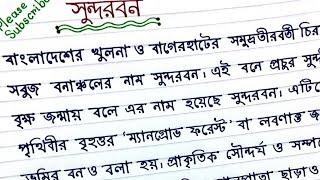 Please
Subscribe
সুন্দরবন
বাংলাদেশের খুলনা ও বাগেরহাটের সমুদ্রতীরবর্তী চির
সবুজ বনাঞ্চলের নাম সুন্দরবন। এই বনে প্রচুর সুন্দ
বৃক্ষ জন্মায় বলে এর নাম হয়েছে সুন্দরবন। এটিকে
পৃথিবীর বৃহত্তর 'ম্যানগ্রোভ ফরেস্ট' বা লবণাক্ত জ
ভূমির বন ও বলা হয়। প্রাকৃতিক সৌন্দর্য ও সম্প
ছাড়াও